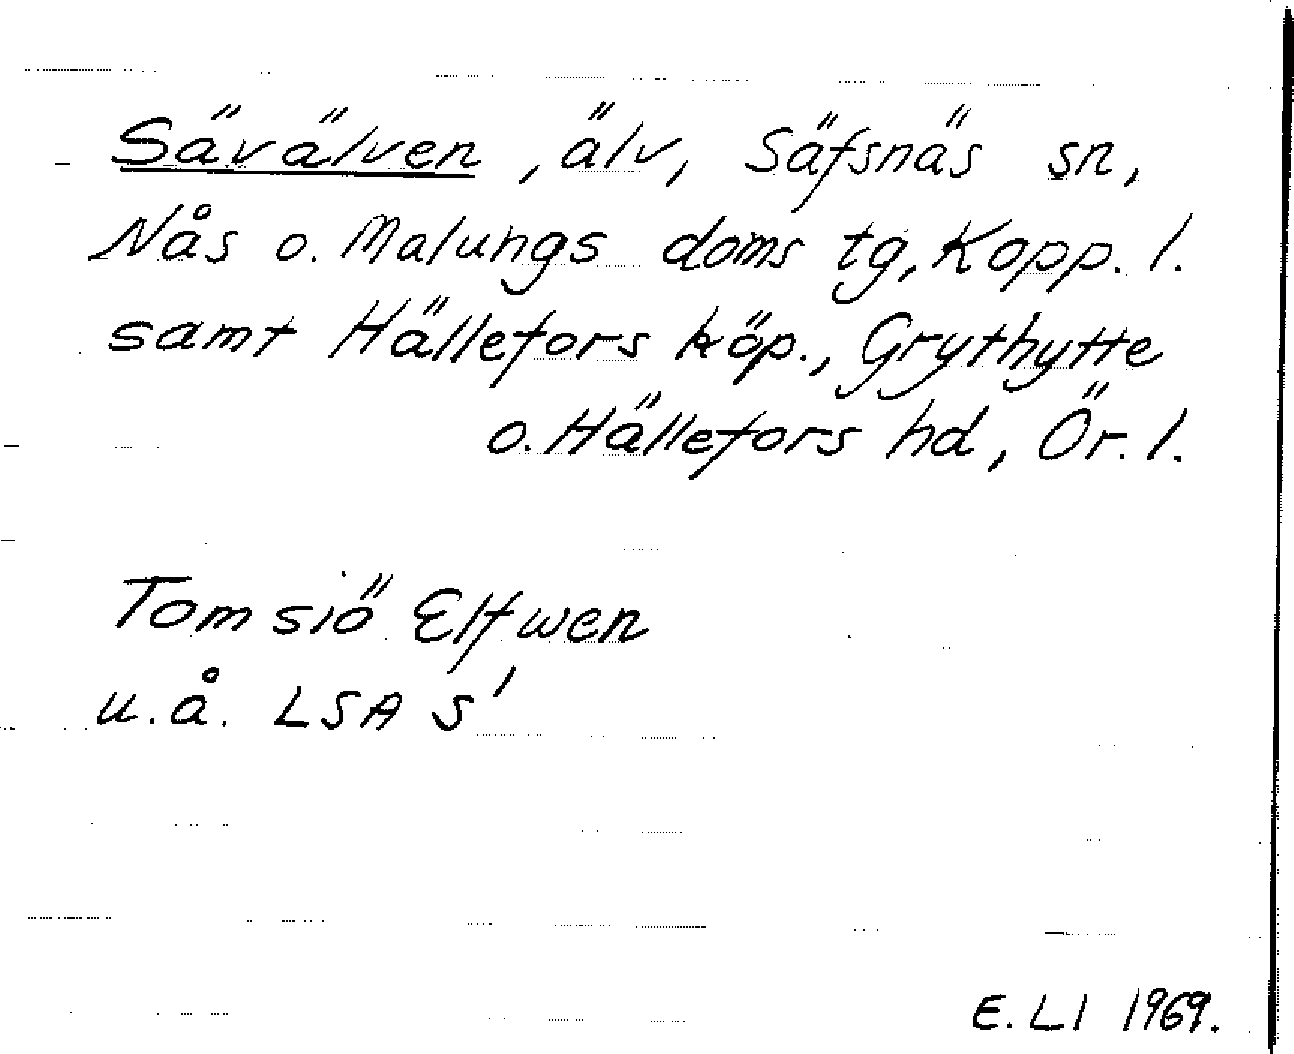 Sävälven, älv, Säfsnäs sn,
Nås o. Malungs doms tg, Kopp. l.
samt Hällefors köp., Grythytte
o. Hällefors hd, Ör. l.
Tomsiö Elfwen
u.å. LSA S'
E. LI 1969.